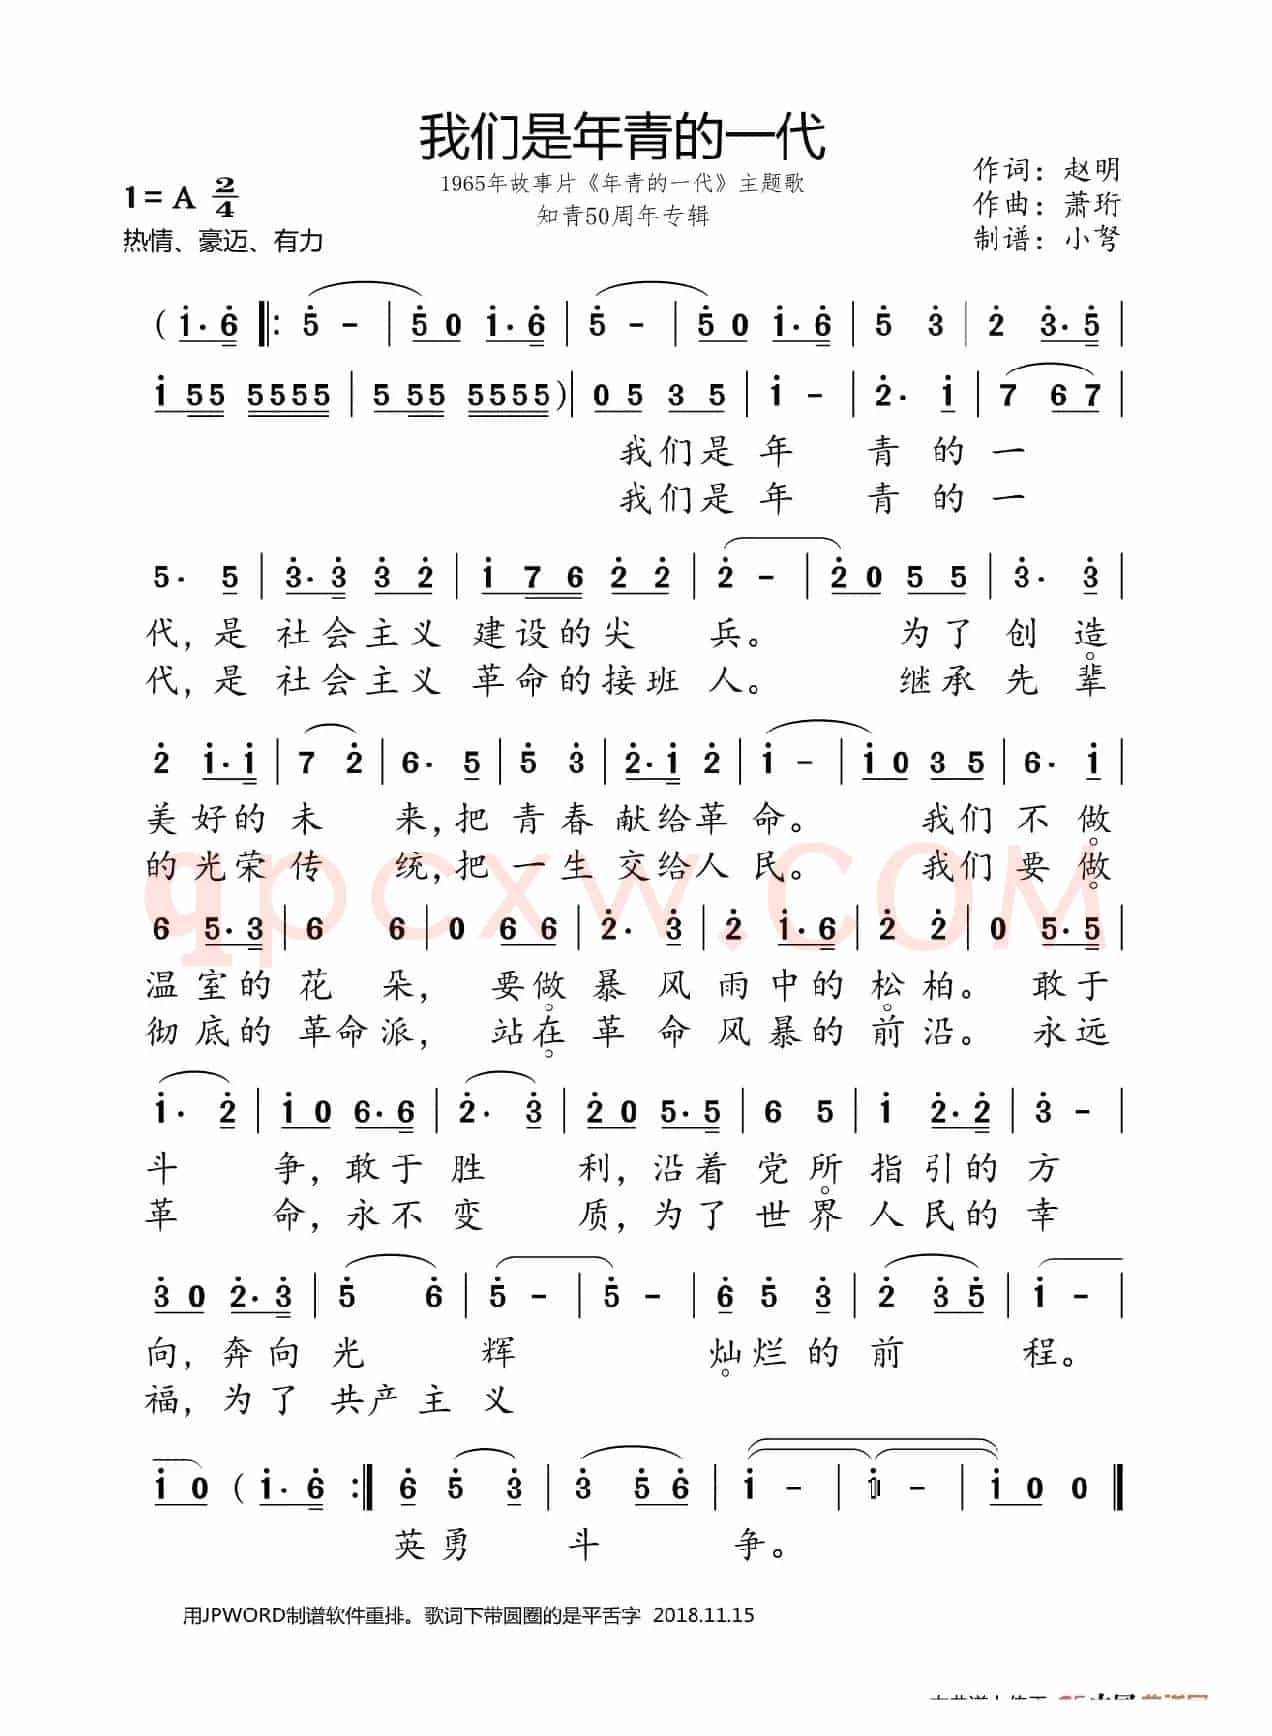 我们是年青的一代
1965年故事片《年青的一代》主题歌
知青50周年专辑
1=A 2/4
热情、豪迈、有力
作词：赵明
作曲：萧珩
制谱：小弩
( 1· 6 ‖: 5 - | 5 0 1· 6 | 5 - | 5 0 1· 6 | 5 3 | 2 3· 5 |
1 5 5 5 5 5 5 | 5 5 5 5 5 5 5 ) | 0 5 3 5 | 1 - | 2· 1 | 7 6 7 |
我们是年 青 的 一
我们是年 青 的 一
5· 5 | 3· 3 3 2 | 1 7 6 2 2 | 2 - | 2 0 5 5 | 3· 3 |
代，是 社会主义 建设的尖 兵。 为了创 造
代，是 社会主义 革命的接班人。 继承先 辈
2 1· 1 | 7 2 | 6· 5 | 5 3 | 2· 1 2 | 1 - | 1 0 3 5 | 6· 1 |
美好的未 来，把 青春 献给革 命。 我们不 做
的光荣传 统，把 一生 交给人 民。 我们要 做
qpcxw.COM
6 5· 3 | 6 6 | 0 6 6 | 2· 3 | 2 1· 6 | 2 2 | 0 5· 5 |
温室的 花 朵， 要做 暴 风 雨中的 松柏。 敢于
彻底的 革命派， 站在 革 命 风暴的 前沿。 永远
1· 2 | 1 0 6· 6 | 2· 3 | 2 0 5· 5 | 6 5 | 1 2· 2 | 3 - |
斗 争，敢于 胜 利，沿着 党所 指引的 方
革 命，永不 变 质，为了 世界 人民的 幸
3 0 2· 3 | 5 6 | 5 - | 5 - | 6 5 3 | 2 3 5 | 1 - |
向，奔向 光 辉 灿烂的 前 程。
福，为了 共产主 义
1 0 ( 1· 6 :‖ 6 5 3 | 3 5 6 | 1 - | 1 - | 1 0 0 ‖
英勇 斗 争。
用JPWORD制谱软件重排。歌词下带圆圈的是平舌字 2018.11.15